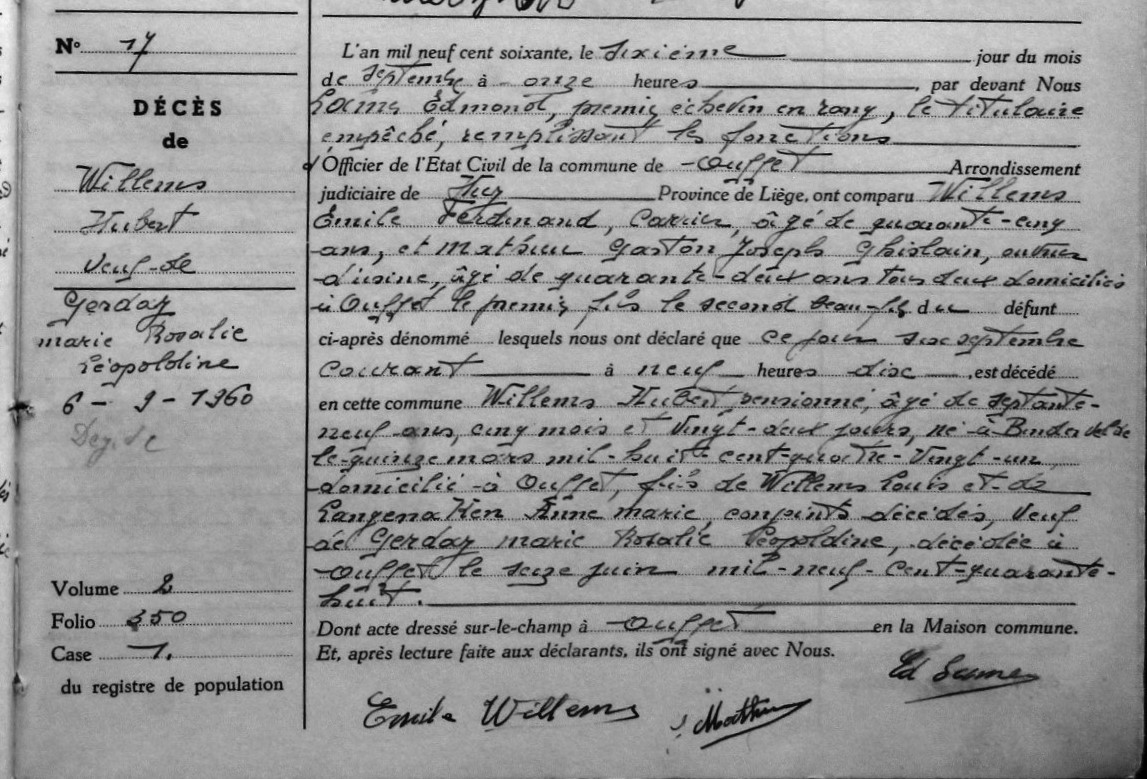 No 17
DÉCÈS
de
Willems
Hubert
veuf de
Gerday
marie Rosalie
Léopoldine
6 - 9 - 1960
Volume 2
Folio 350
Case 1.
du registre de population
L'an mil neuf cent soixante, le sixième jour du mois
de septembre à onze heures, par devant Nous
Edmond, premier échevin en rang, le titulaire
empêché, remplissant les fonctions
d'Officier de l'Etat Civil de la commune de Ouffet Arrondissement
judiciaire de Huy Province de Liège, ont comparu Willems
Emile Ferdinand, Carrier, âgé de quarante-cinq
ans, et Mathieu Gaston Joseph Ghislain, ouvrier
d'usine, âgé de quarante-deux ans tous deux domiciliés
à Ouffet le premier fils le second beau-fils du défunt
ci-après dénommé lesquels nous ont déclaré que ce jour six septembre
courant à neuf heures dix, est décédé
en cette commune Willems Hubert, pensionné, âgé de septante-
neuf ans, cinq mois et vingt-deux jours, né à
le quinze mars mil-huit-cent-quatre-vingt-un
domicilié à Ouffet, fils de Willems Louis et de
Langenaken Anne Marie, conjoints décédés, veuf
de Gerday marie Rosalie Léopoldine, décédée à
Ouffet le seize juin mil-neuf-cent-quarante-
huit.
Dont acte dressé sur-le-champ à Ouffet en la Maison commune.
Et, après lecture faite aux déclarants, ils ont signé avec Nous.
Emile Willems
Mathieu